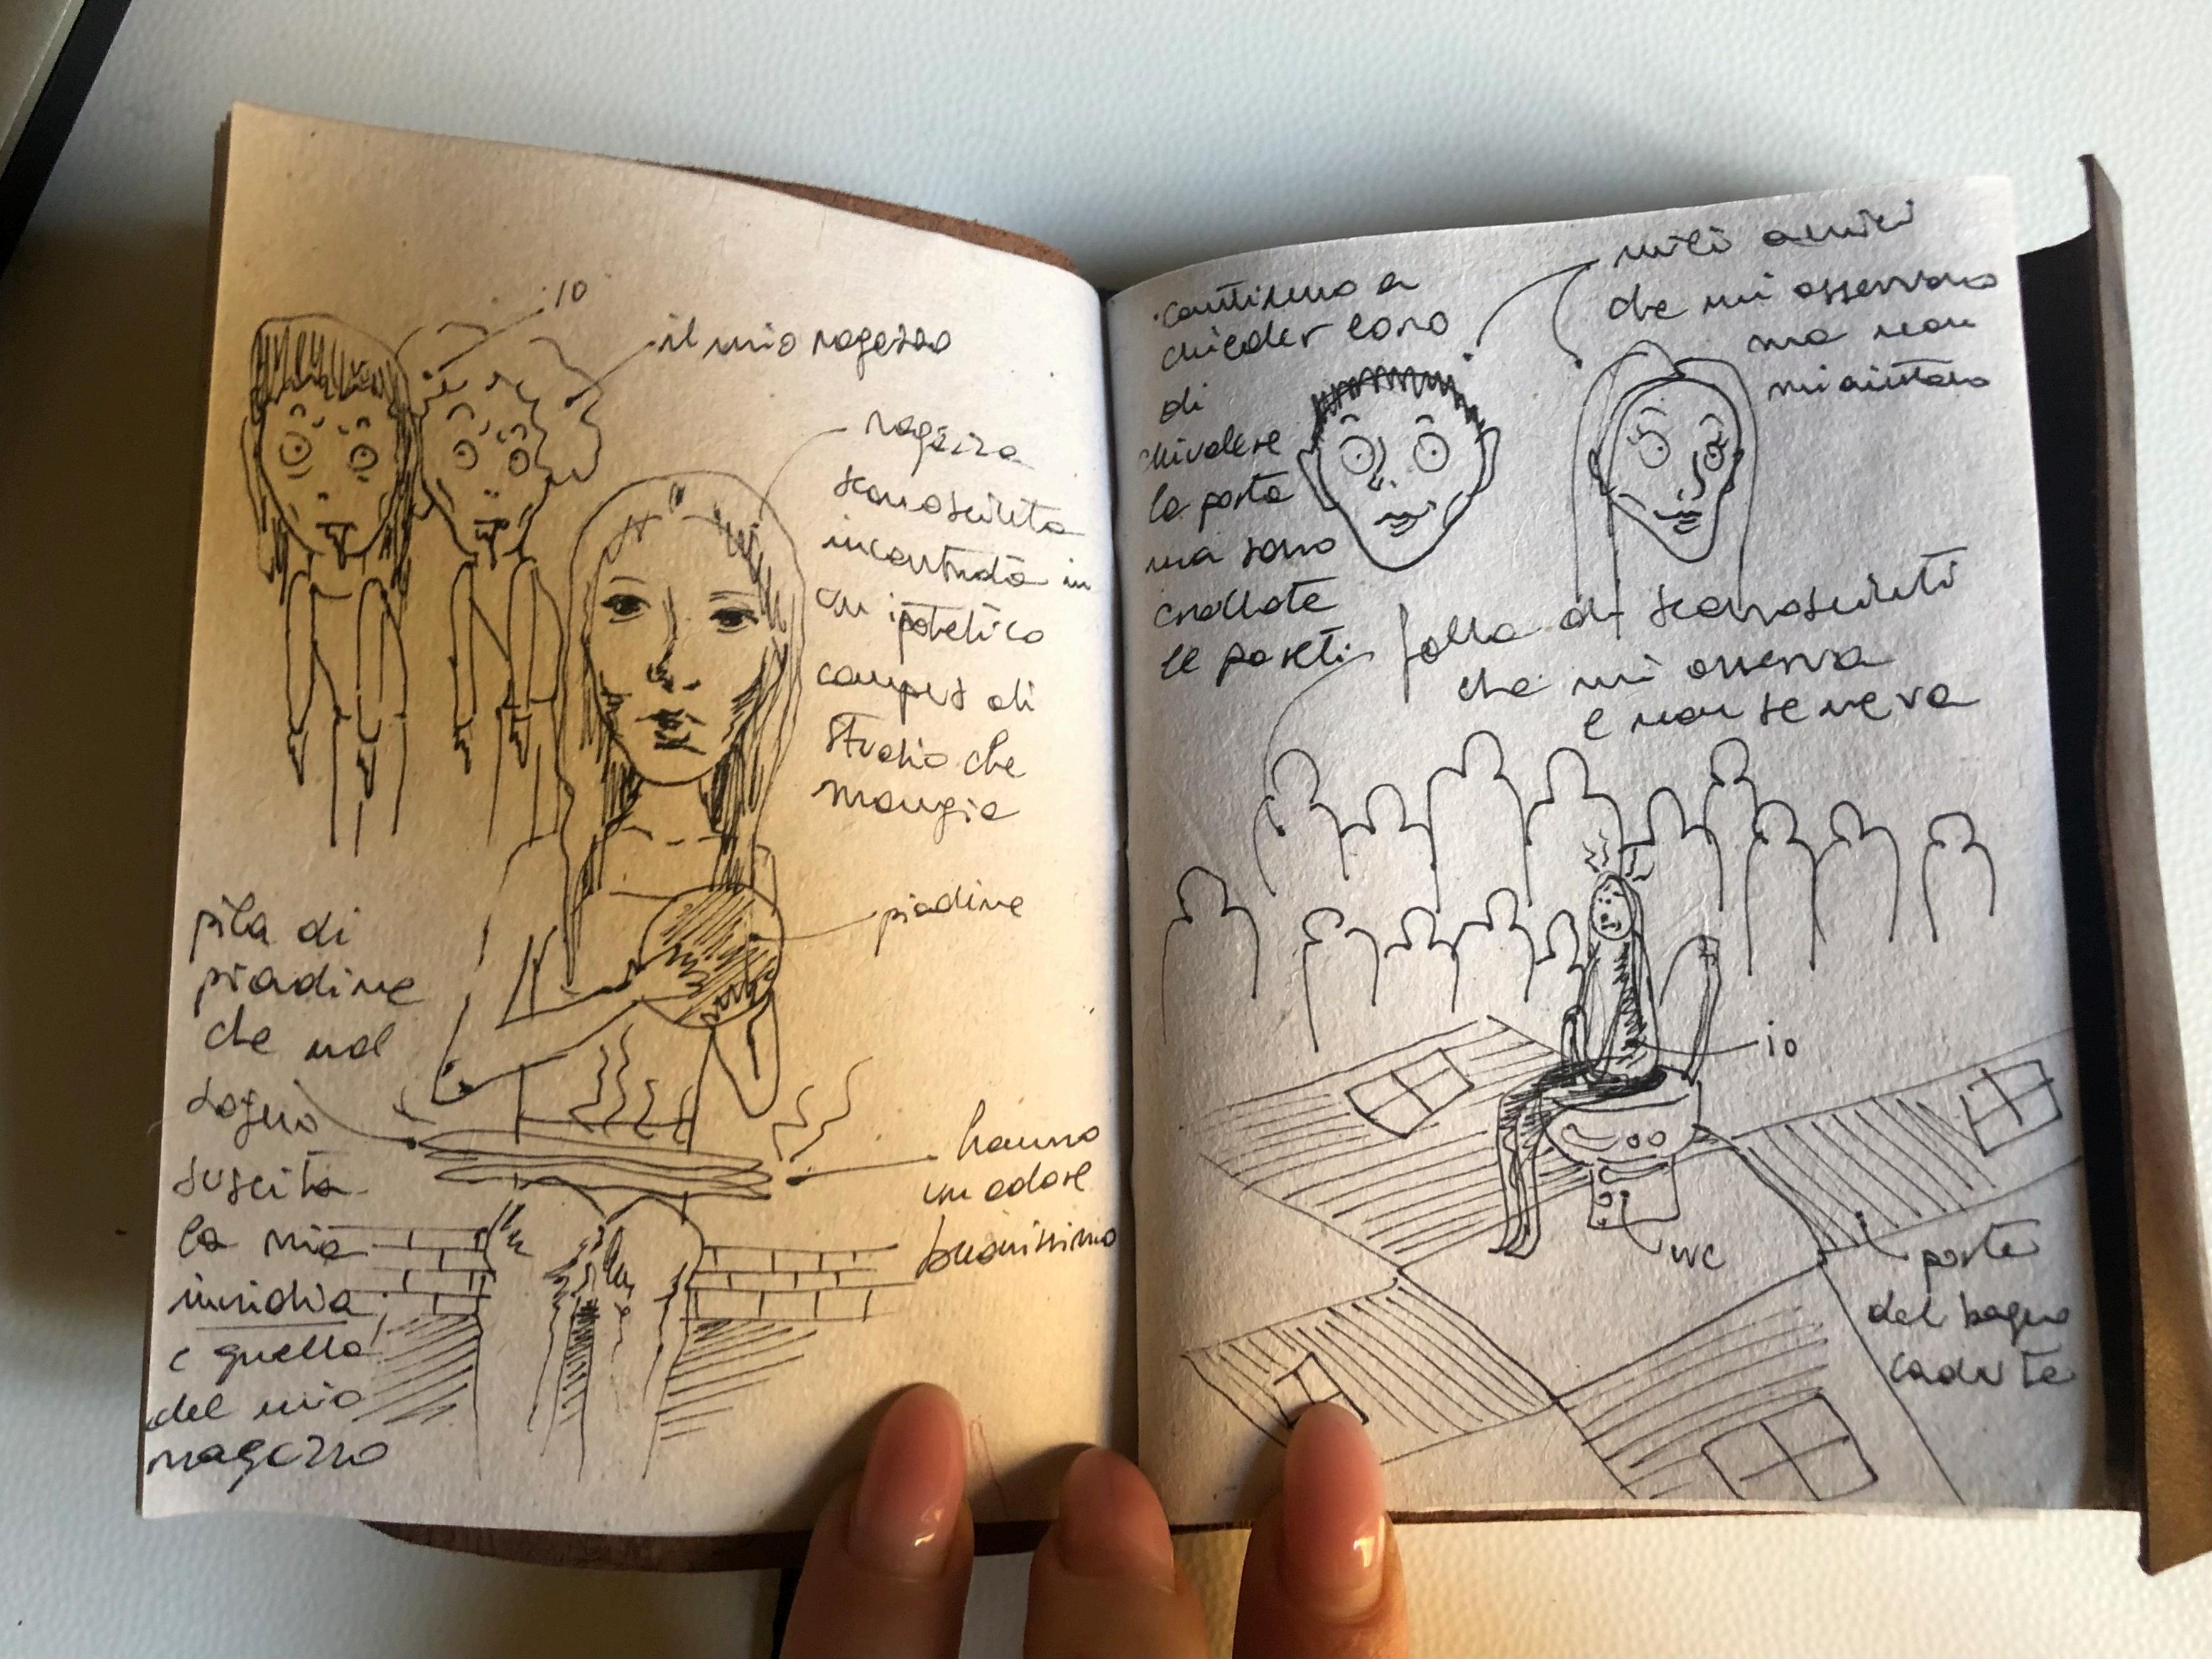 io
il mio ragazzo
ragazza
sconosciuta
incontrata in
un ipotetico
campus di
studio che
mangia
piadine
pila di
piadine
che nel
sogno
suscita
la mia
invidia
e quella
del mio
ragazzo
hanno
un odore
buonissimo
continuo a
chieder loro
di
chiudere
la porta
ma sono
crollate
le pareti
miei amici
che mi osservano
ma non
mi aiutano
folla di sconosciuti
che mi osserva
e non se ne va
io
wc
porte
del bagno
cadute